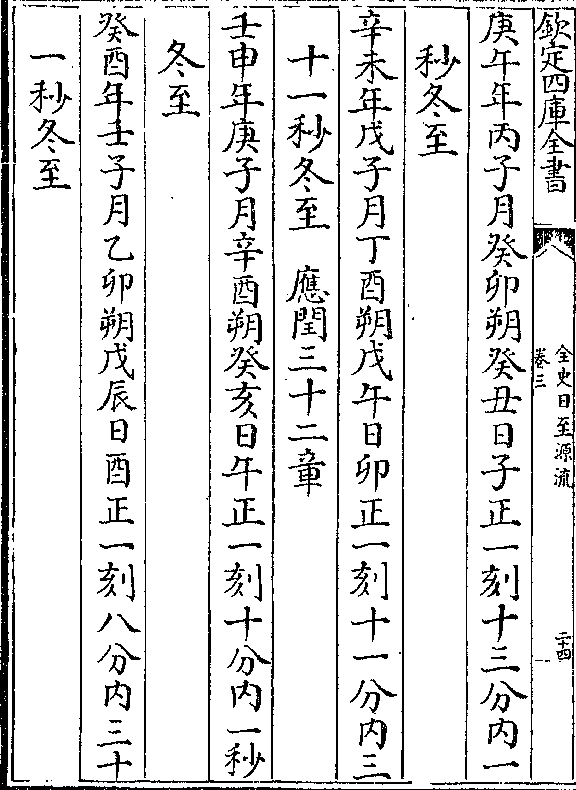 欽定四庫全書
全史日至源流
卷三
二十四
庚午年丙子月癸卯朔癸丑日子正一刻十三分内一
秒冬至
辛未年戊子月丁酉朔戊午日卯正一刻十一分内三
十一秒冬至　應閏三十二章
壬申年庚子月辛酉朔癸亥日午正一刻十分内一秒
冬至
癸酉年壬子月乙卯朔戊辰日酉正一刻八分内三十
一秒冬至